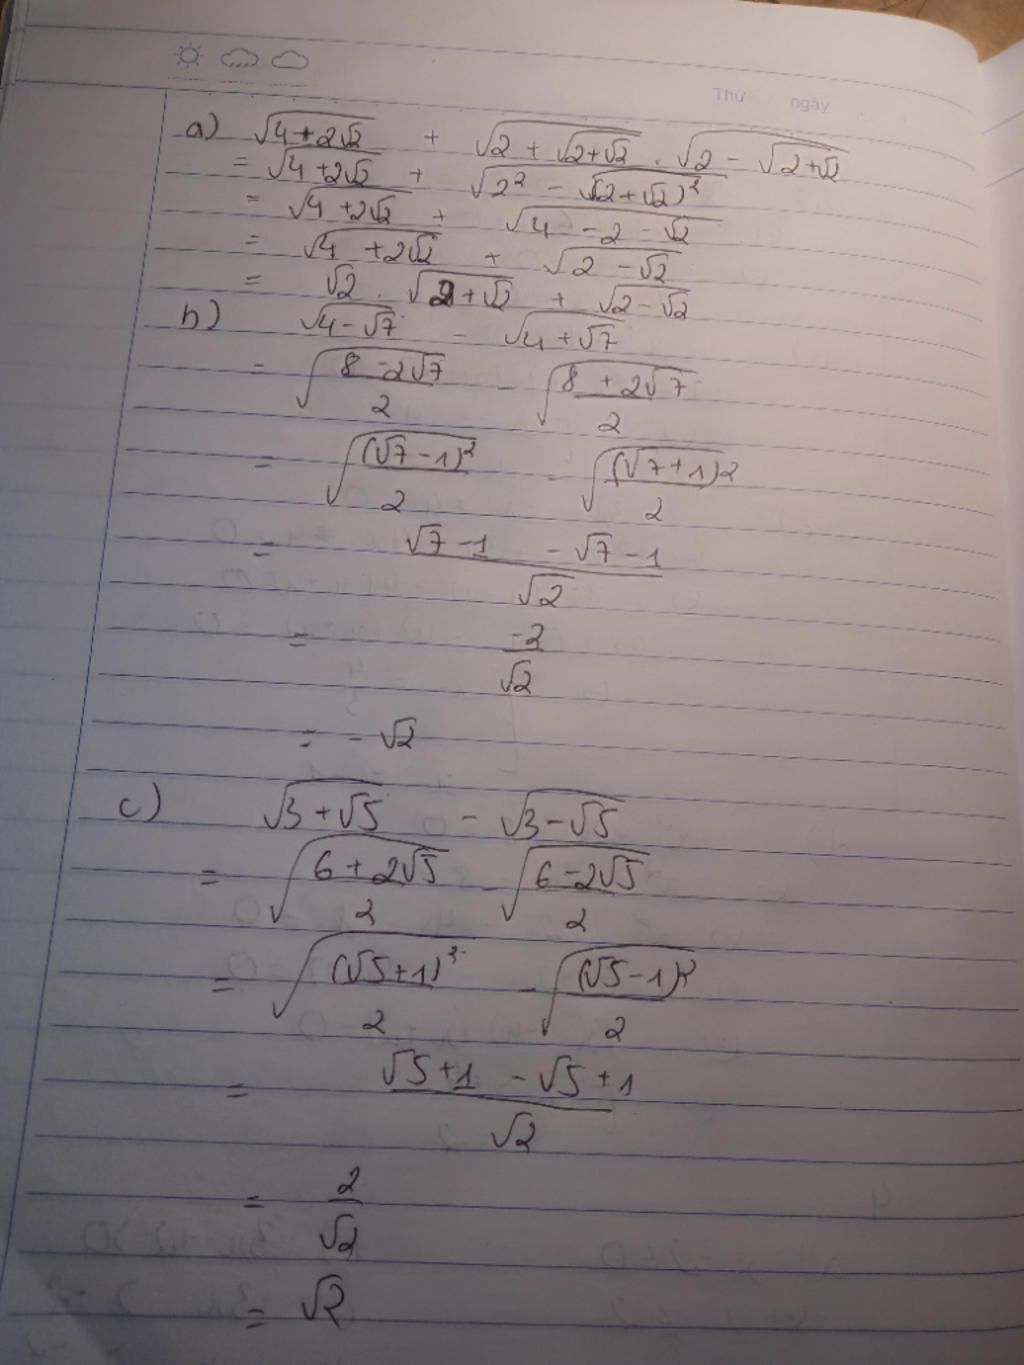 Thứ ngày
a) √(4+2√2) + √(2+√(2+√2)) . √(2-√(2+√2))
= √(4+2√2) + √(2² - √(2+√2)²)
= √(4+2√2) + √(4-2-√2)
= √(4+2√2) + √(2-√2)
= √2 . √(2+√2) + √(2-√2)
b) √(4-√7) - √(4+√7)
= √((8-2√7)/2) - √((8+2√7)/2)
= √((√7-1)²/2) - √((√7+1)²/2)
= (√7-1 -√7-1)/√2
= -2/√2
= -√2
c) √(3+√5) - √(3-√5)
= √((6+2√5)/2) - √((6-2√5)/2)
= √((√5+1)²/2) - √((√5-1)²/2)
= (√5+1 -√5+1)/√2
= 2/√2
= √2